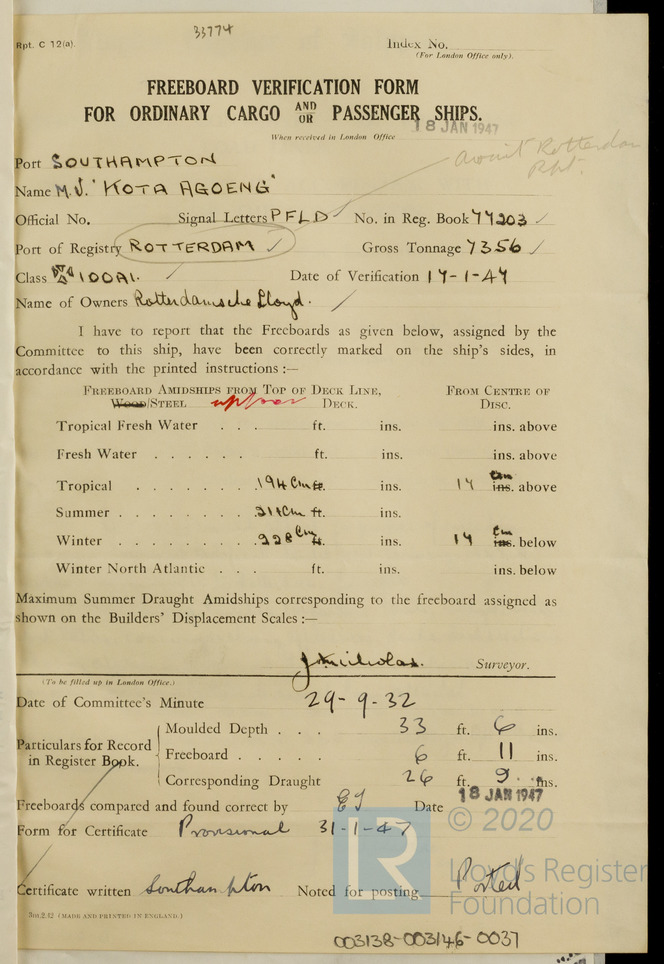 33774
Rpt. C 12(a).
Index No.
(For London Office only).
FREEBOARD VERIFICATION FORM
FOR ORDINARY CARGO AND OR PASSENGER SHIPS.
18 JAN 1947
When received in London Office
await Rotterdam
Rpt.
Port SOUTHAMPTON
Name M.V. 'KOTA AGOENG'
Official No. Signal Letters PFLD No. in Reg. Book 77203
Port of Registry ROTTERDAM Gross Tonnage 7356
Class 100A1. Date of Verification 17-1-47
Name of Owners Rotterdamsche Lloyd.
I have to report that the Freeboards as given below, assigned by the
Committee to this ship, have been correctly marked on the ship's sides, in
accordance with the printed instructions :—
FREEBOARD AMIDSHIPS FROM TOP OF DECK LINE, FROM CENTRE OF
WOOD/STEEL upper DECK. DISC.
Tropical Fresh Water . . . ft. ins. ins. above
Fresh Water . . . . . . ft. ins. ins. above
Tropical . . . . . . . 194 Cm ft. ins. 17 Cm ins. above
Summer . . . . . . . 211 Cm ft. ins.
Winter . . . . . . . 228 Cm ft. ins. 17 Cm ins. below
Winter North Atlantic . . . ft. ins. ins. below
Maximum Summer Draught Amidships corresponding to the freeboard assigned as
shown on the Builders' Displacement Scales :—
J Nicholas. Surveyor.
(To be filled up in London Office.)
Date of Committee's Minute 29-9-32
Particulars for Record in Register Book.
Moulded Depth . . . 33 ft. 6 ins.
Freeboard . . . . . 6 ft. 11 ins.
Corresponding Draught 26 ft. 9 ins.
Freeboards compared and found correct by EJ Date 18 JAN 1947
Form for Certificate Provisional 31-1-47
Certificate written Southampton Noted for posting Posted
3m,2,12 (MADE AND PRINTED IN ENGLAND.)
LR
© 2020
Lloyd's Register
Foundation
003138-003146-0037